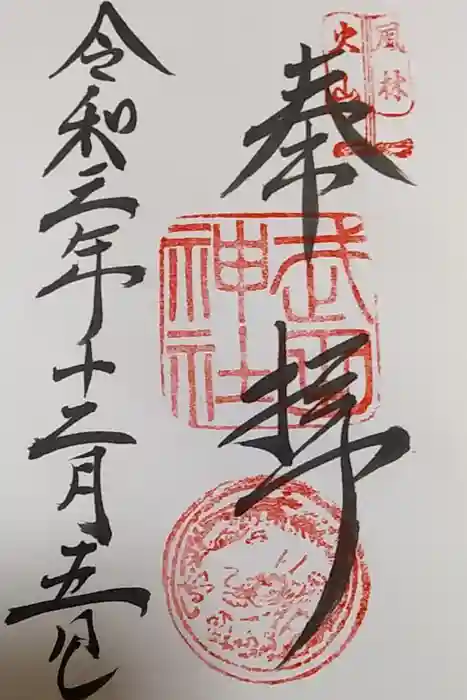 奉拝
風林
火山
武田
神社
令和三年十二月五日